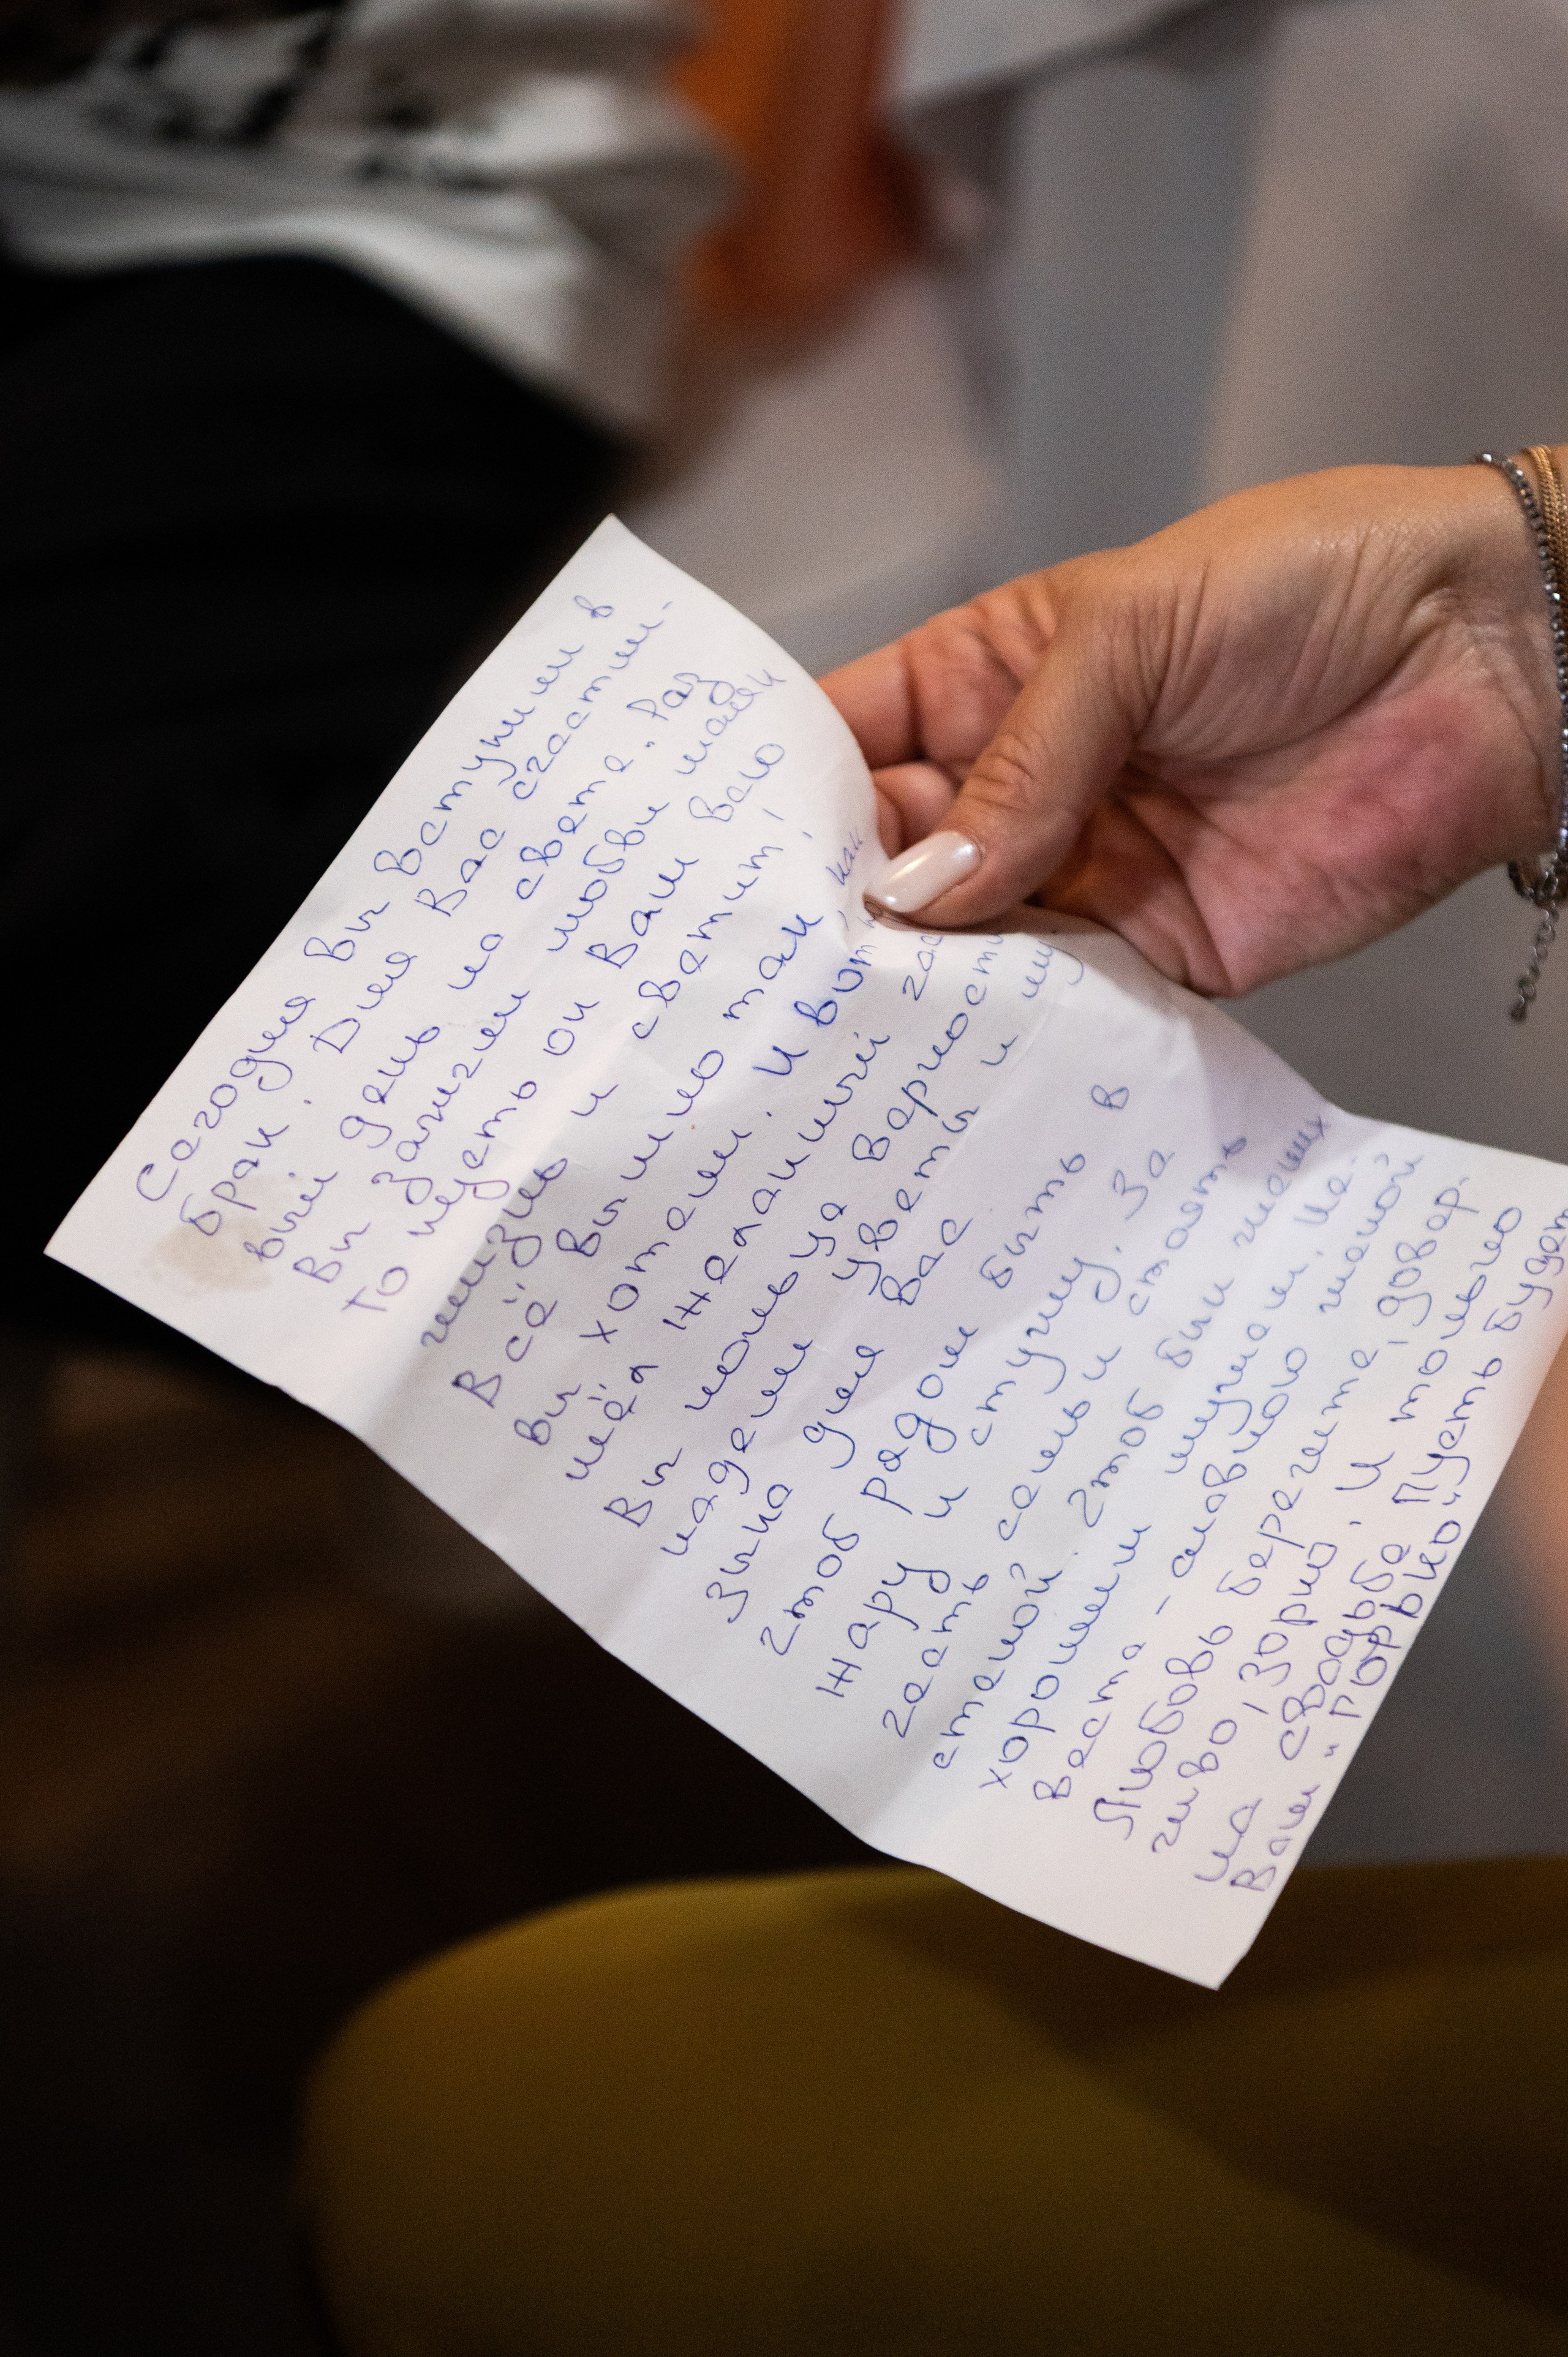 Сегодня Вы вступили в
брак. Для Вас счастли-
вый день на свете. Раз
Вы зажгли любви маяк
То пусть он Вам всю
жизнь и светит!
Всё вышло так, как
Вы хотели. И вот
нея желанный час
Вы кольца верности
надели цветы и
зыка для Вас
Чтоб рядом быть в
жару и стужу. За
честь семьи стоять
стеной. Чтоб был жених
хорошим мужем. Не-
веста - славною женой
Любовь берегите, довер-
чиво, зорко. И только
на свадьбе Пусть будет
Вам "горько"